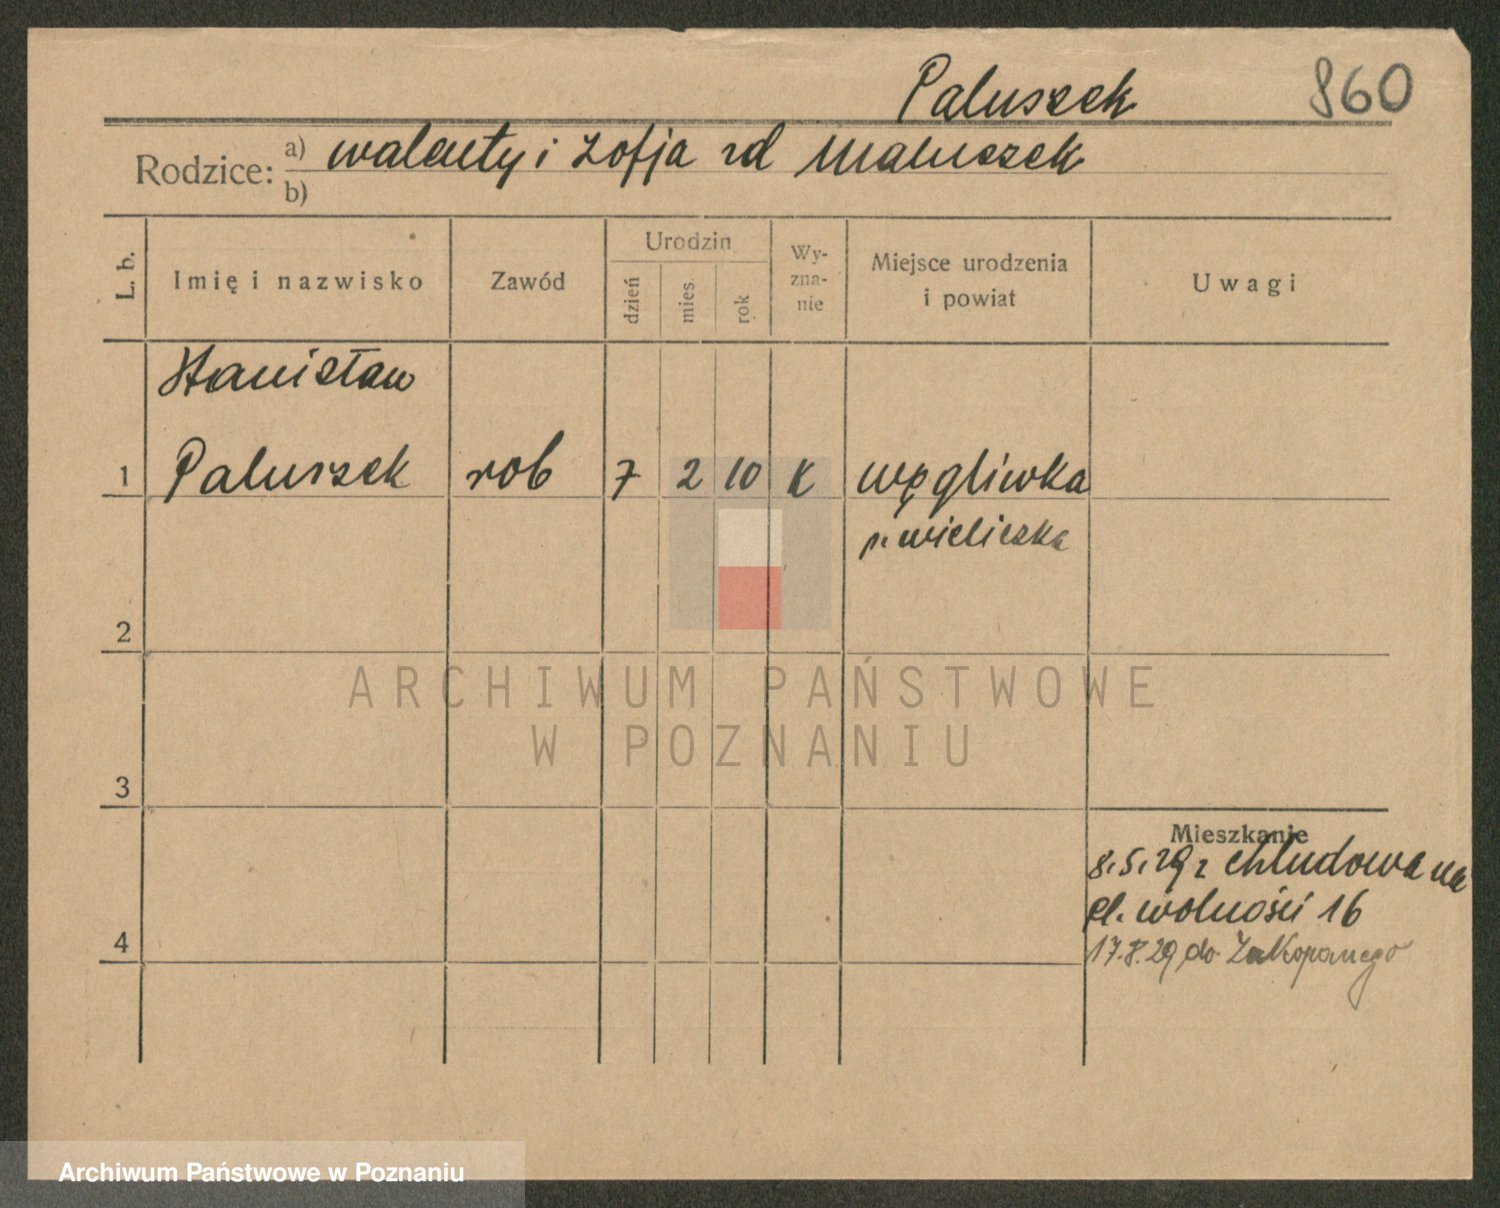 Paluszek 860
Rodzice: a) walenty i zofja zd Maluszek
b)
L. b.
Imię i nazwisko
Zawód
Urodzin
dzień
mies.
rok
Wy-
zna-
nie
Miejsce urodzenia
i powiat
Uwagi
Stanisław
1 Paluszek rob 7 2 10 K węgliwka
p. wieliczka
2
3
4
ARCHIWUM PAŃSTWOWE
W POZNANIU
Mieszkanie
8.5.29 z chludowa na
pl. wolności 16
17.8.29 do Zakopanego
Archiwum Państwowe w Poznaniu